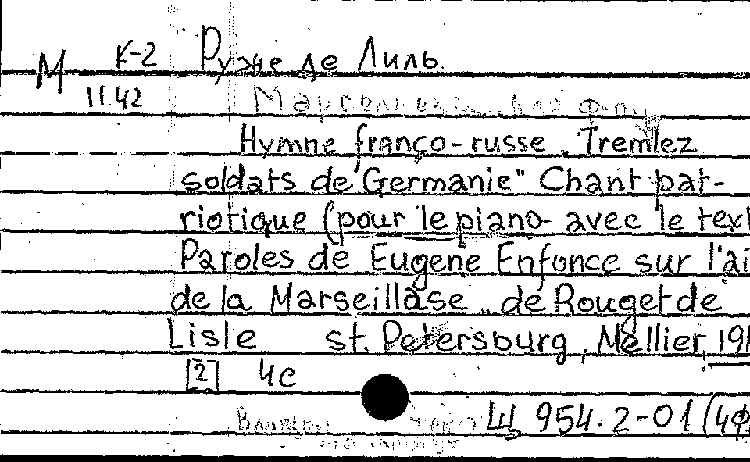 М К-2 Руже де Лиль.
11.42
Hymne franço-russe. Tremlez
soldats de Germanie" Chant pat-
riotique (pour le piano avec le text
Paroles de Eugene Enfonce sur l'ai
de la Marseillase de Rouget de
Lisle st. Petersburg, Mellier 191
[2] 4с
Ш 954.2-01 (4ф